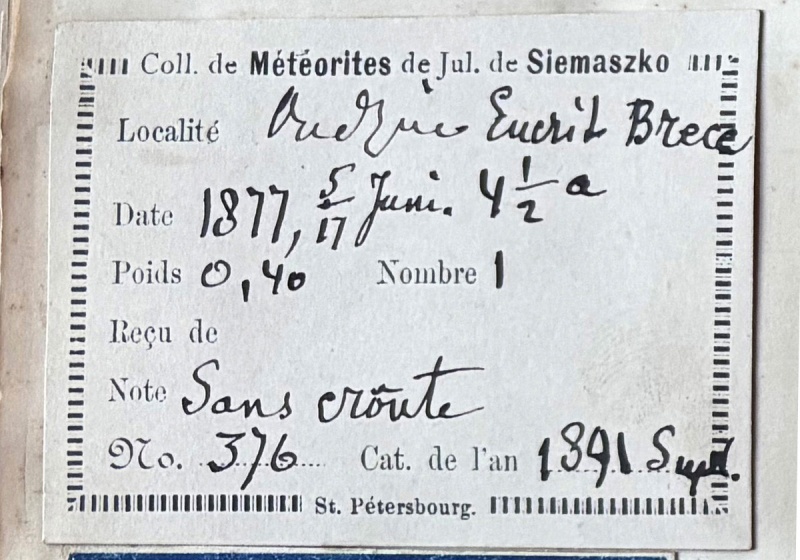 Coll. de Météorites de Jul. de Siemaszko
Localité Eucrit Brecc
Date 1877, 5/17 Juni. 4 1/2 a
Poids 0,40 Nombre 1
Reçu de
Note Sans croûte
No. 376 Cat. de l'an 1891 Suppl.
St. Pétersbourg.